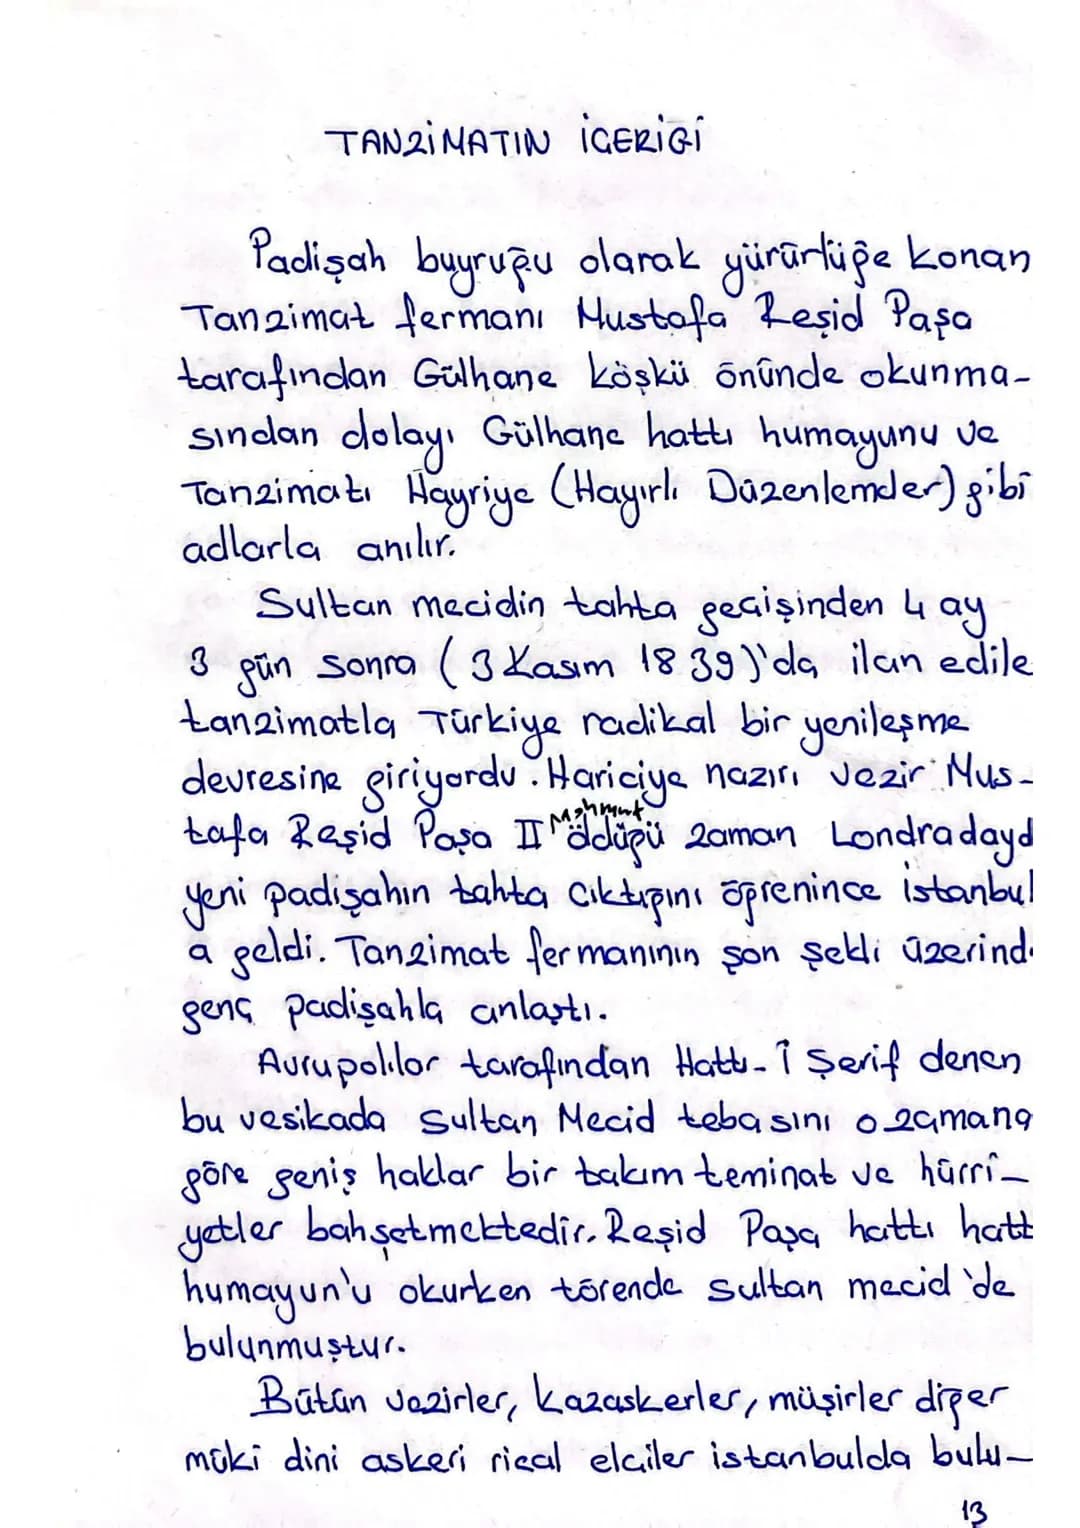 TANZİMATIN İÇERİĞİ
Padişah buyruğu olarak yürürlüğe konan
Tanzimat fermanı Mustafa Reşid Paşa
tarafından Gülhane köşkü önünde okunma-
sından dolayı Gülhane hattı humayunu ve
Tanzimatı Hayriye (Hayırlı Düzenlemeler) gibi
adlarla anılır.
Sultan mecidin tahta geçişinden 4 ay
3 gün sonra (3 Kasım 1839)'da ilan edile
tanzimatla Türkiye radikal bir yenileşme
devresine giriyordu. Hariciye nazırı vezir Mus-
tafa Reşid Paşa II Mahmut öldüğü zaman Londradayd
yeni padişahın tahta çıktığını öğrenince istanbul
a geldi. Tanzimat fermanının şon şekli üzerind
genç padişahla anlaştı.
Avrupalılar tarafından Hattı-î Şerif denen
bu vesikada Sultan Mecid tebasını o zamana
göre geniş haklar bir takım teminat ve hürri-
yetler bahşetmektedir. Reşid Paşa hattı hatt
humayun'u okurken törende sultan mecid 'de
bulunmuştur.
Bütün vezirler, kazaskerler, müşirler diğer
müki dini askeri rical elçiler istanbulda bulu-
13